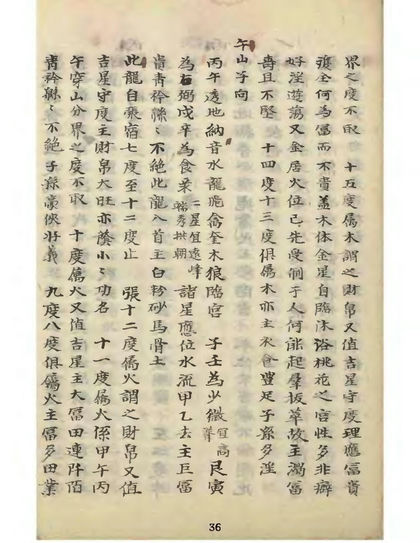 界之度不取　十五度屬木謂之財帛又值吉星守度理應富貴
復全何為富而不貴蓋木体金星自臨沐浴桃花之宮性多非癖
好淫遊蕩又金居火位已先受制于人何能起羣拔萃故主濁富
壽且不堅　十四度十三度俱屬木亦主衣食豐足子孫多淫
午山子向
丙午透地納音水龍跪禽奎木狼臨宮　子壬為少微宜高 艮寅
為右弼戌辛為食柰二星宜遠峰秀拱朝諸星應位水流甲乙去主巨富
貴青衿綿綿不絕此龍八首主白粉砂馬骨土
此龍自張宿七度至十二度止　張十二度屬火謂之財帛又值
吉星守度主財帛大旺亦發小小功名　十一度屬火係甲午丙
午穿山分界之度不取　十度屬火又值吉星主大富田連阡陌
青衿綿綿不絕子孫豪俠好義　九度八度俱屬火主富多田業
36